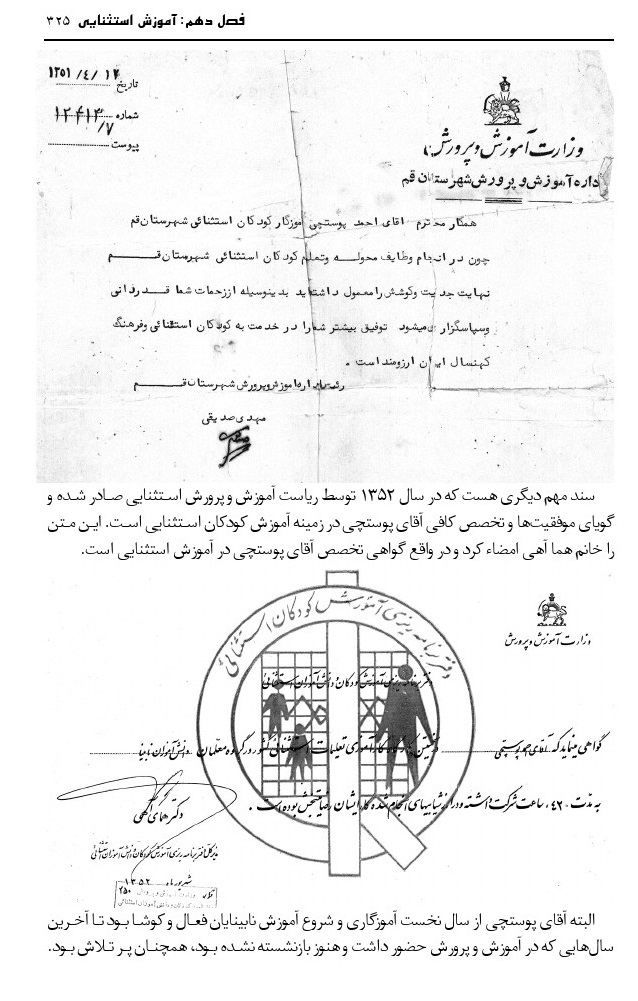 فصل دهم: آموزش استثنایی ۳۲۵
۱۳۵۱/٤/۱۲
تاریخ
شماره ۱۲۴۱۳/۷
پیوست
وزارت آموزش و پرورش
اداره آموزش و پرورش شهرستان قم
همکار محترم اقای احمد پوستچی اموزگار کودکان استثنائی شهرستان قم
چون در انجام وظایف محوله وتعلیم کودکان استثنائی شهرستان قم
نهایت جدیت وکوشش را معمول داشته‌اید بدینوسیله اززحمات شما قدردانی
وسپاسگزاری میشود توفیق بیشتر شما را در خدمت به کودکان استثنائی وفرهنگ
کهنسال ایران ارزومند است .
رئیس اداره اموزش وپرورش شهرستان قم
مهدی صدیقی
سند مهم دیگری هست که در سال ۱۳۵۲ توسط ریاست آموزش و پرورش استثنایی صادر شده و
گویای موفقیت‌ها و تخصص کافی آقای پوستچی در زمینه آموزش کودکان استثنایی است. این متن
را خانم هما آهی امضاء کرد و در واقع گواهی تخصص آقای پوستچی در آموزش استثنایی است.
دفتر برنامه ریزی آموزش کودکان استثنائی
وزارت آموزش و پرورش
دفتر برنامه ریزی آموزش کودکان و دانش آموزان استثنائی
گواهی مینماید که آقای احمد پوستچی در کارآموزی تعلیمات استثنائی کشور در گروه معلمان دانش آموزان نابینا
به مدت ۴۲۰ ساعت شرکت داشته و در ارزشیابیهای انجام شده کار ایشان رضایتبخش بوده است .
دکتر هما آهی
مدیر کل دفتر برنامه ریزی آموزش کودکان و دانش آموزان استثنائی
شهریور ماه ۱۳۵۲
البته آقای پوستچی از سال نخست آموزگاری و شروع آموزش نابینایان فعال و کوشا بود تا آخرین
سال‌هایی که در آموزش و پرورش حضور داشت و هنوز بازنشسته نشده بود، همچنان پر تلاش بود.